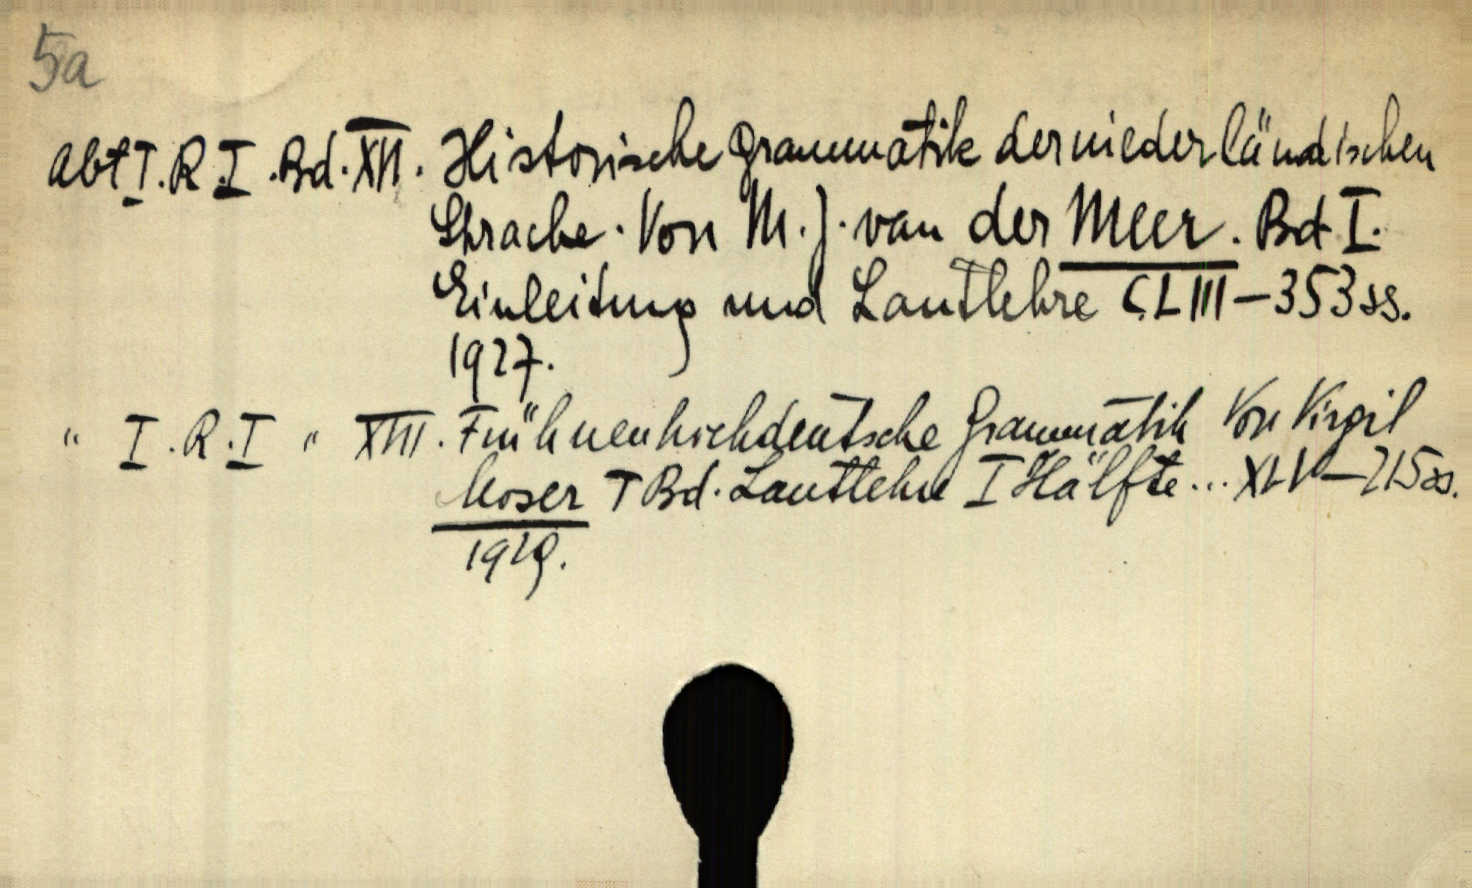 5a
Abt I. R. I. Bd. XII. Historische Grammatik der niederländischen
Sprache. Von M. J. van der Meer. Bd I.
Einleitung und Lautlehre CLIII–353 ss.
1927.
" I. R. I " XVII. Frühneuhochdeutsche Grammatik Von Virgil
Moser I Bd. Lautlehre I Hälfte... XLV–215 ss.
1929.